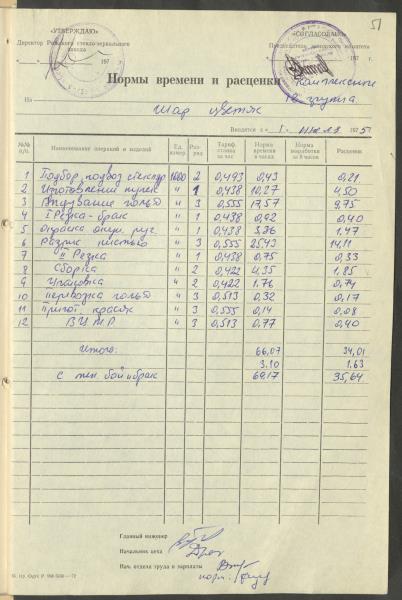 51
„УТВЕРЖДАЮ"
Директор Рижского стекло-зеркального
завода
197
„СОГЛАСОВАНО"
Председатель заводского комитета
197
Нормы времени и расценки
комплексные
12 группа
На Шар цветик
Вводятся с „ 1 " июля 1975
№№ п/п. Наименование операций и изделий Ед. измер. Разряд Тариф. ставка за час Норма времени в часах Норма выработки за 8 часов Расценки
1 Подбор, подвоз стеклотр 1000 2 0,493 0,43 0,21
2 Изготовление пулек " 1 0,438 10,27 4,50
3 Выдувание голья " 3 0,555 17,57 9,75
4 I Резка-брак " 1 0,438 0,92 0,40
5 " 1 0,438 3,36 1,47
6 Распис кистью " 3 0,555 25,43 14,11
7 II Резка " 1 0,438 0,75 0,33
8 Сборка " 2 0,422 4,35 1,85
9 Упаковка " 2 0,422 1,76 0,74
10 Переводка голья " 3 0,513 0,32 0,17
11 Пригот красок " 3 0,555 0,14 0,08
12 " 3 0,513 0,77 0,40
Итого: 66,07 34,01
3.10 1.63
с тех. бой и брак 69.17 35,64
Главный инженер
Начальник цеха
Нач. отдела труда и зарплаты
норм.